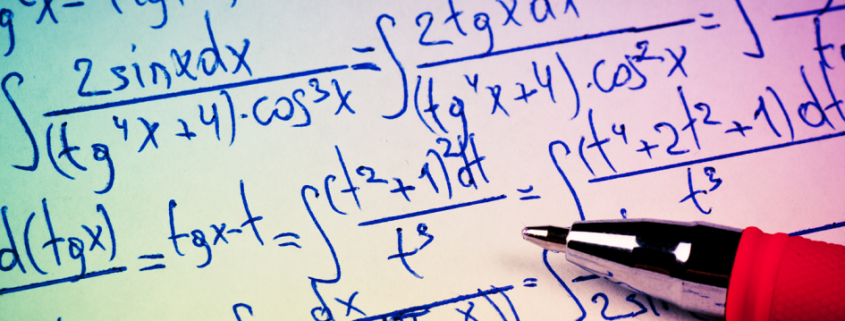 ∫ 2sinxdx / (tg⁴x+4)·cos³x = ∫ 2tgxdx / (tg⁴x+4)·cos²x = ∫
d(tgx) = tgx-t = ∫ (t²+1)²dt / t³ = ∫ (t⁴+2t²+1)dt / t³
dx = ∫